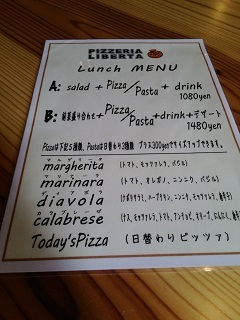 PIZZERIA
LIBERTA
Lunch MENU
A: salad + Pizza/Pasta + drink
1080yen
B: 前菜盛り合わせ + Pizza/Pasta + drink + デザート
1480yen
Pizzaは下記5種類、Pastaは日替わり2種類 プラス300yenでサイズアップできます。
マルゲリータ
margherita (トマト、モッツァレラ、バジル)
マリナーラ
marinara (トマト、オレガノ、ニンニク、バジル)
ディアボラ
diavola
カラブレーゼ
calabrese
Today'sPizza (日替わりピッツァ)